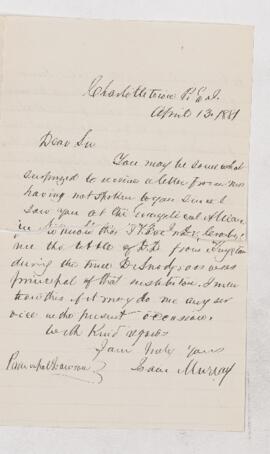 Charlottetown P. E. I.
April 13 1881
Dear Sir
You may be somewhat
surprised to receive a letter from me
having not spoken to you since I
saw you at the Evangelical Alliance
in
me the title of D.D from
during the time Dr Snodgrass was
principal of that institution. I men
tion this if it may do me any ser
vice in the present occasion.
With Kind regards
I am truly Yours
Principal Dawson
Isaac Murray